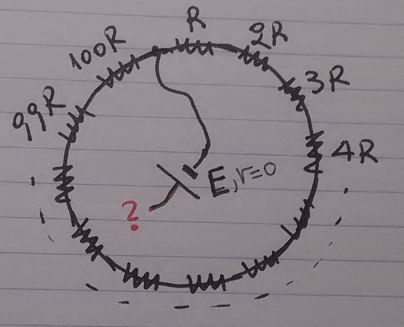 R
2R
3R
4R
100R
99R
E, r=0
?